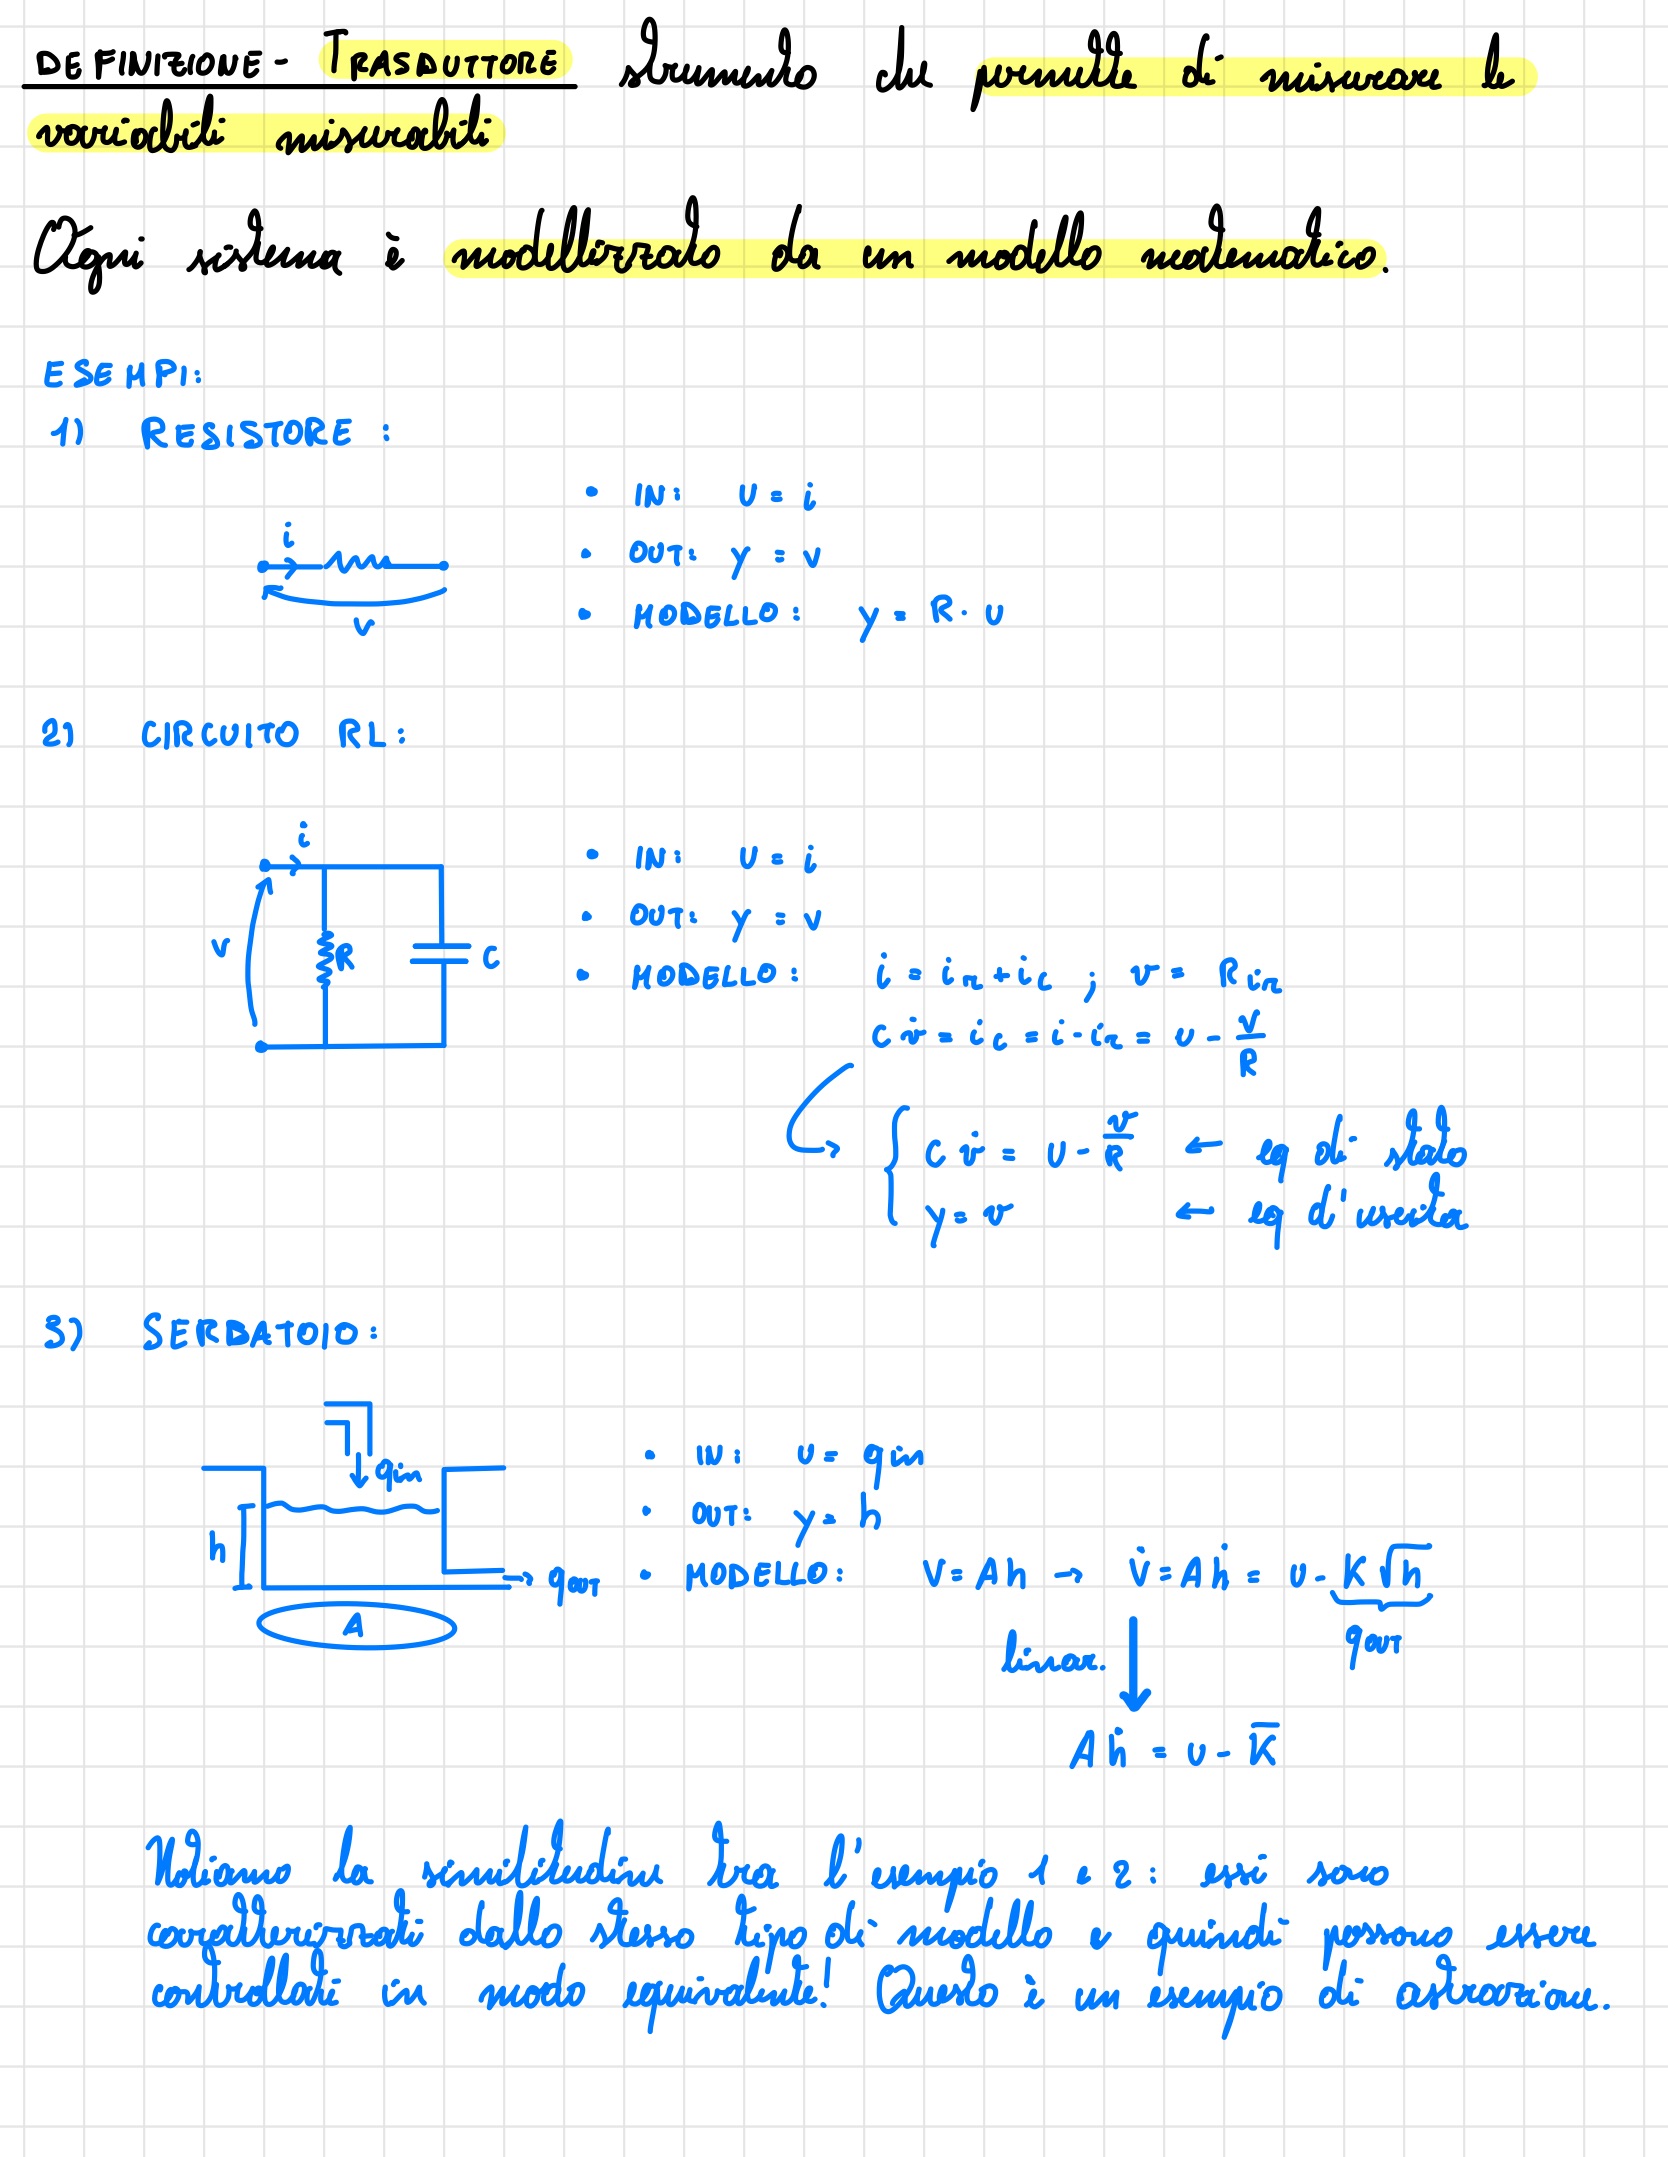 DEFINIZIONE - TRASDUTTORE strumento che permette di misurare le
variabili misurabili
Ogni sistema è modellizzato da un modello matematico.
ESEMPI:
1) RESISTORE :
• IN: U = i
i
• OUT: y = v
v
• MODELLO: y = R · U
2) CIRCUITO RL:
i
• IN: U = i
• OUT: y = v
v R C
• MODELLO: i = i_r + i_c ; v = R i_r
C v̇ = i_c = i - i_r = U - v/R
{ C v̇ = U - v/R ← eq di stato
y = v ← eq d'uscita
3) SERBATOIO:
• IN: U = q_in
q_in
• OUT: y = h
h
→ q_OUT
• MODELLO: V = Ah → V̇ = Aḣ = U - K√h
A
q_OUT
linear.
Aḣ = U - K̅
Notiamo la similitudine tra l'esempio 1 e 2 : essi sono
caratterizzati dallo stesso tipo di modello e quindi possono essere
controllati in modo equivalente! Questo è un esempio di astrazione.